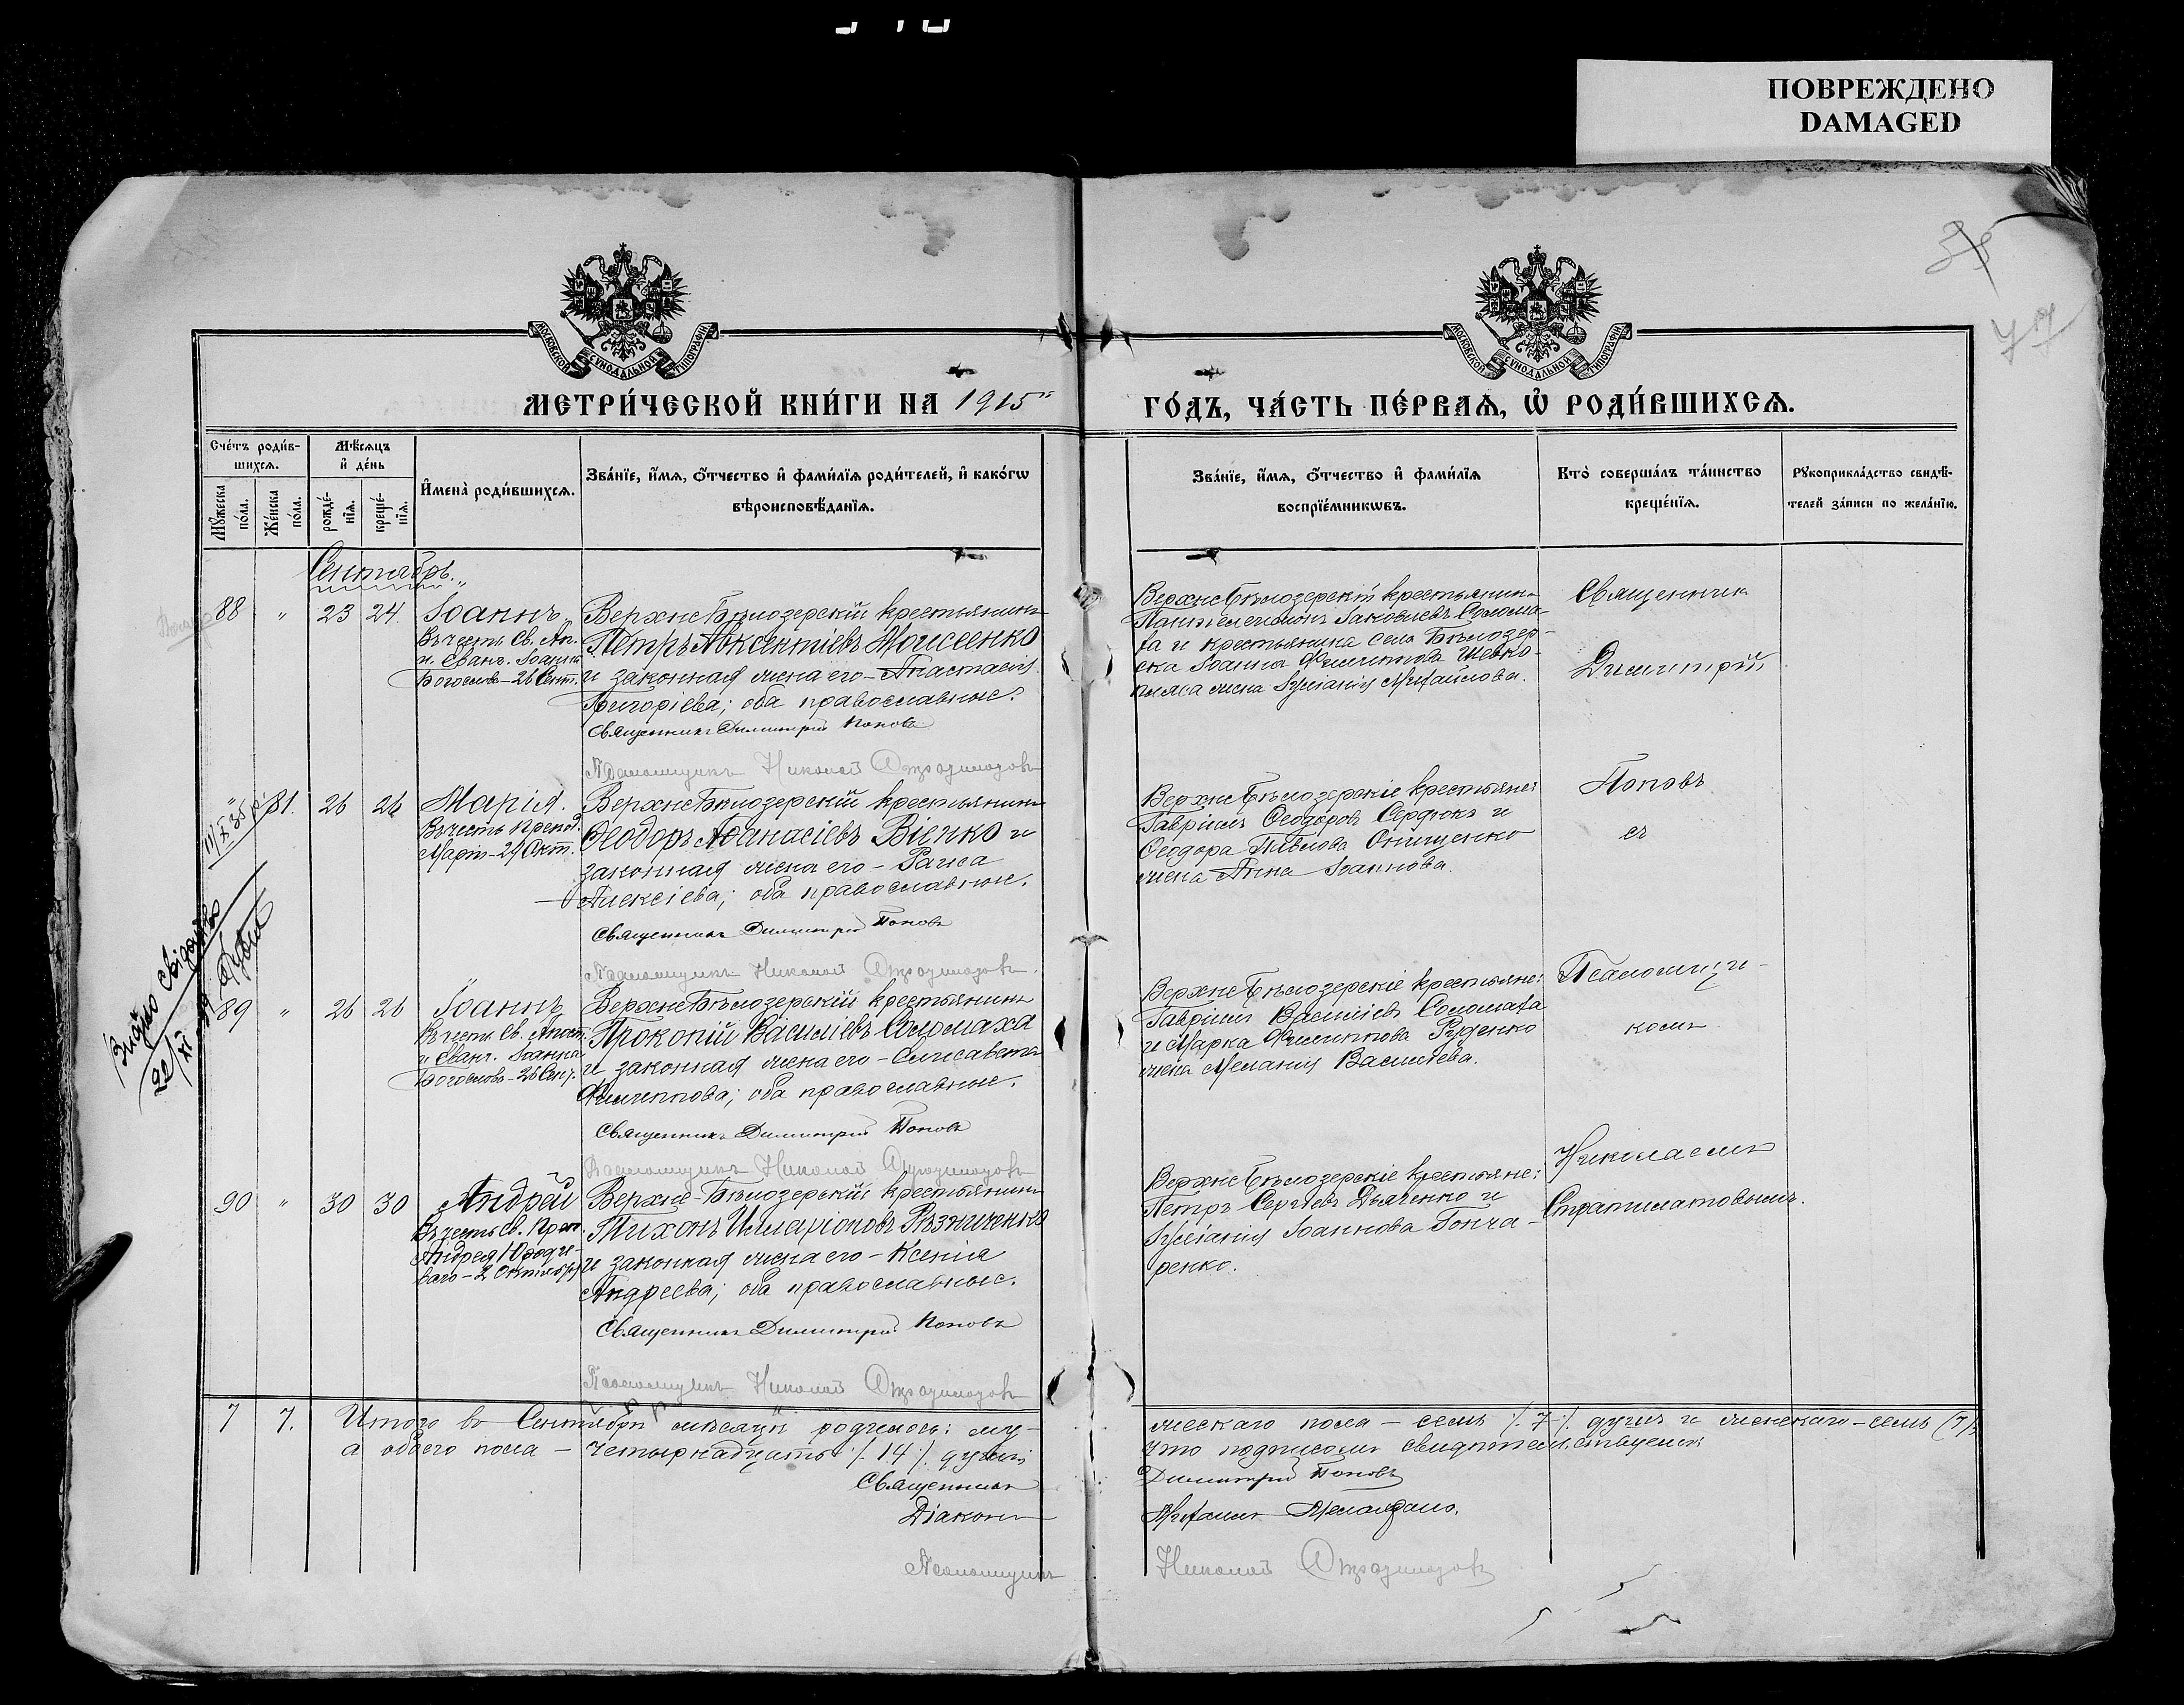 ПОВРЕЖДЕНО
DAMAGED
МОСКОВСКОЙ СѴНОДАЛЬНОЙ ТИПОГРАФІИ
МОСКОВСКОЙ СѴНОДАЛЬНОЙ ТИПОГРАФІИ
МЕТРИ́ЧЕСКОЙ КНИ́ГИ НА 1915
ГО́ДЪ, ЧА́СТЬ ПЕ́РВАѦ, Ѡ҆ РОДИ́ВШИХСѦ.
Сче́тъ роди́в-
шихсѧ.
Мѣ́сѧцъ
и҆ де́нь
Мꙋ́жеска по́ла.
Же́нска по́ла.
рожде́-
нїѧ.
креще́-
нїѧ.
И҆мена̀ роди́вшихсѧ.
Зва́нїе, и҆́мѧ, ѻ҆́тчество и҆ фами́лїѧ роди́телей, и҆ како́гѡ
вѣроисповѣ́данїѧ.
Зва́нїе, и҆́мѧ, ѻ҆́тчество и҆ фами́лїѧ
воспрїе́мникѡвъ.
Кто̀ соверша́лъ та́инство
креще́нїѧ.
Рꙋкоприкла́дство свидѣ́-
телей за́писи по жела́нїю.
Сентябрь.
88 " 23 24.
Іоаннъ
Въ честь Св. Ап.
и Еванг. Іоанна
Богослова – 26 Сент.
Верхне Бѣлозерскій крестьянинъ
Петръ Авксентіевъ Моисеенко
и законная жена его – Анастасія
Григоріева; оба православные.
Священникъ Димитрій Поповъ
Псаломщикъ Николай Стратилатовъ
Верхне Бѣлозерскій крестьянинъ
Пантелеимонъ Іаковлевъ Солома-
ха и крестьянина села Бѣлозер-
ска Іоанна Филиппова Шевко-
пляса жена Іуліанія Михайлова.
Священник
Димитрій
" 81. 26 26
Марія.
Въ честь Препод.
Маріи – 29 Окт.
Верхне Бѣлозерскій крестьянинъ
Ѳеодоръ Аѳанасіевъ Віенко и
законная жена его – Раиса
Алексіева; оба православные.
Священникъ Димитрій Поповъ
Псаломщикъ Николай Стратилатовъ.
Верхне Бѣлозерскіе крестьяне:
Гавріилъ Ѳеодоровъ Сердюкъ и
Ѳеодора Павлова Онищенко
жена Анна Іоаннова.
Поповъ
съ
89 " 26 26
Іоаннъ
Въ честь Св. Апост.
и Еванг. Іоанна
Богослова – 26 Сент.
Верхне Бѣлозерскій крестьянинъ
Прокопій Василіевъ Соломаха
и законная жена его – Елисавета
Филиппова; оба православные.
Священникъ Димитрій Поповъ
Псаломщикъ Николай Стратилатовъ
Верхне Бѣлозерскіе крестьяне:
Гавріилъ Василіевъ Соломаха
и Марка Филиппова Руденко
жена Меланія Василіева.
Псаломщи-
комъ
90 " 30 30
Андрей
Въ честь Св. Прав.
Андрея Юроди-
ваго – 2 Октября
Верхне-Бѣлозерскій крестьянинъ
Тихонъ Иларіоновъ Рѣзниченко
и законная жена его – Ксенія
Андреева; оба православные.
Священникъ Димитрій Поповъ
Псаломщикъ Николай Стратилатовъ
Верхне Бѣлозерскіе крестьяне:
Петръ Сергіевъ Дьяченко и
Іуліанія Іоаннова Гонча-
ренко.
Николаемъ
Стратилатовымъ.
7 7. Итого въ Сентябрѣ мѣсяцѣ родилось: му-
жескаго пола – семь /.7./. душъ и женскаго – семь (7),
а обоего пола – четырнадцать /.14./. душъ
что подписомъ свидѣтельствуемъ:
Священникъ Димитрій Поповъ
Діаконъ Михаилъ
Псаломщикъ Николай Стратилатовъ